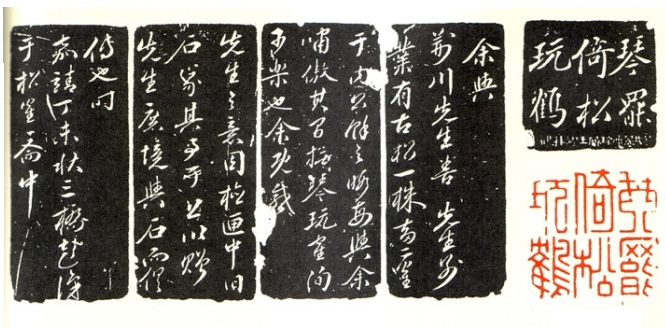 琴罷
倚松
玩鶴
琴罷
倚松
玩鶴
余與
荊川先生善 先生別
業有古松一株畜二鶴
于內公餘之暇每與余
嘯傲其間撫琴玩鶴洵
可樂也余既感
先生之意因檢匣中旧
石篆其事于上以贈
先生庶境與石而俱
傳也时
嘉靖丁未秋三橋彭識
于松鶴齋中